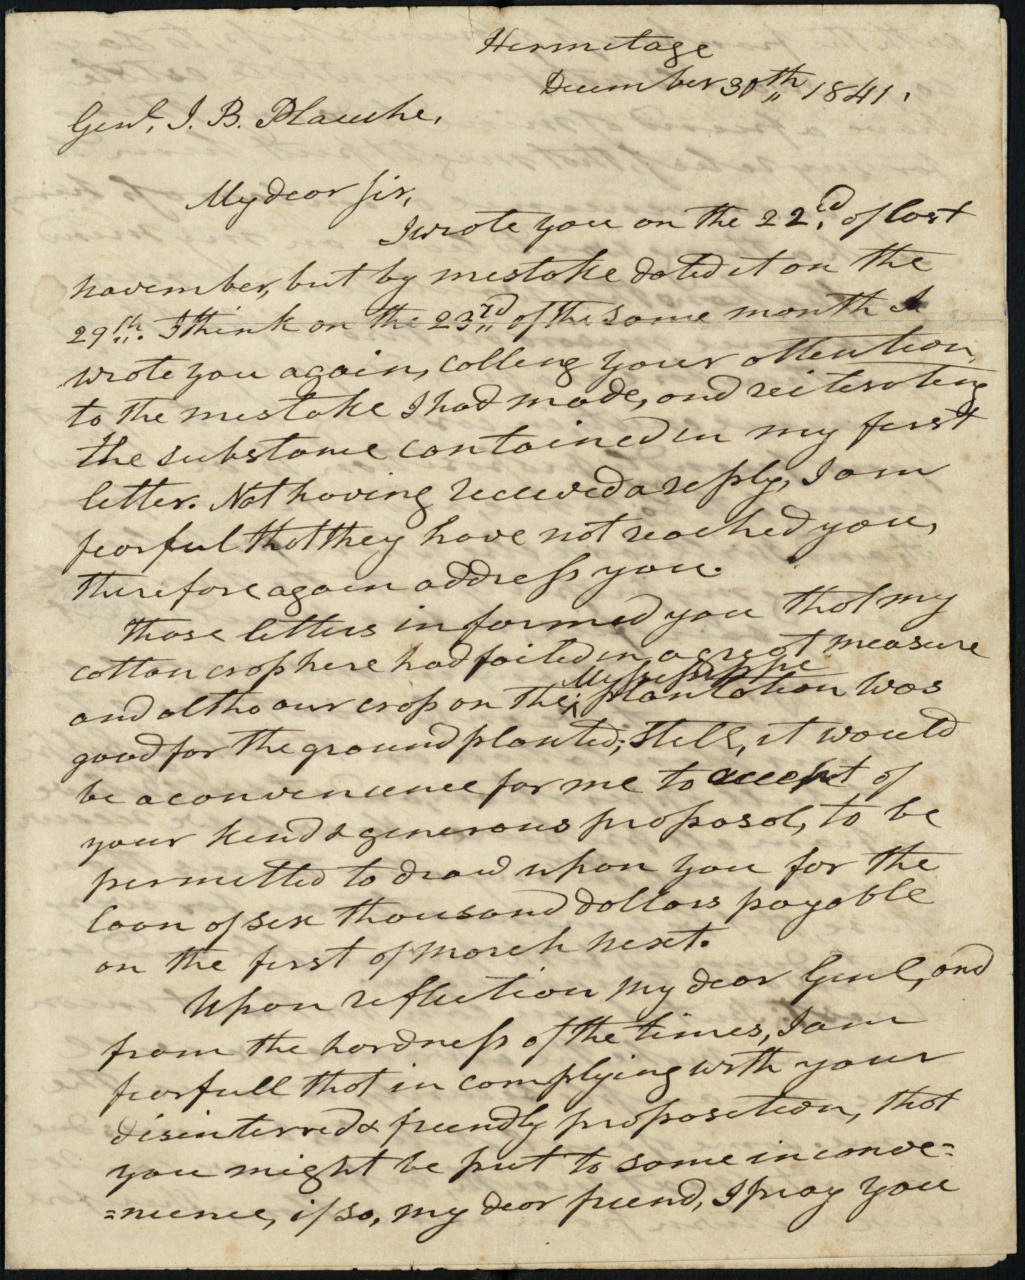 Hermitage
December 30th 1841.
Genl. J. B. Plauche,
My dear Sir,
I wrote you on the 22d. of last
november, but by mistake dated it on the
29th. I think on the 23rd of the same month I
wrote you again, calling your attention
to the mistake I had made, and reiterating
the substance contained in my first
letter. Not having received a reply, I am
fearful that they have not reached you,
therefore again address you.
Those letters informed you that my
cotton crop here had failed in a great measure
Mississippi
and altho our crop on the plantation was
good for the ground planted; still, it would
be a convenience for me to accept of
your kind & generous proposal, to be
permitted to draw upon you for the
loan of six thousand dollars payable
on the first of March next.
Upon reflection my dear Genl, and
from the hardness of the times, I am
fearfull that in complying with your
disinterred & friendly proposition, that
you might be put to some inconve=
=nience, if so, my dear friend, I pray you